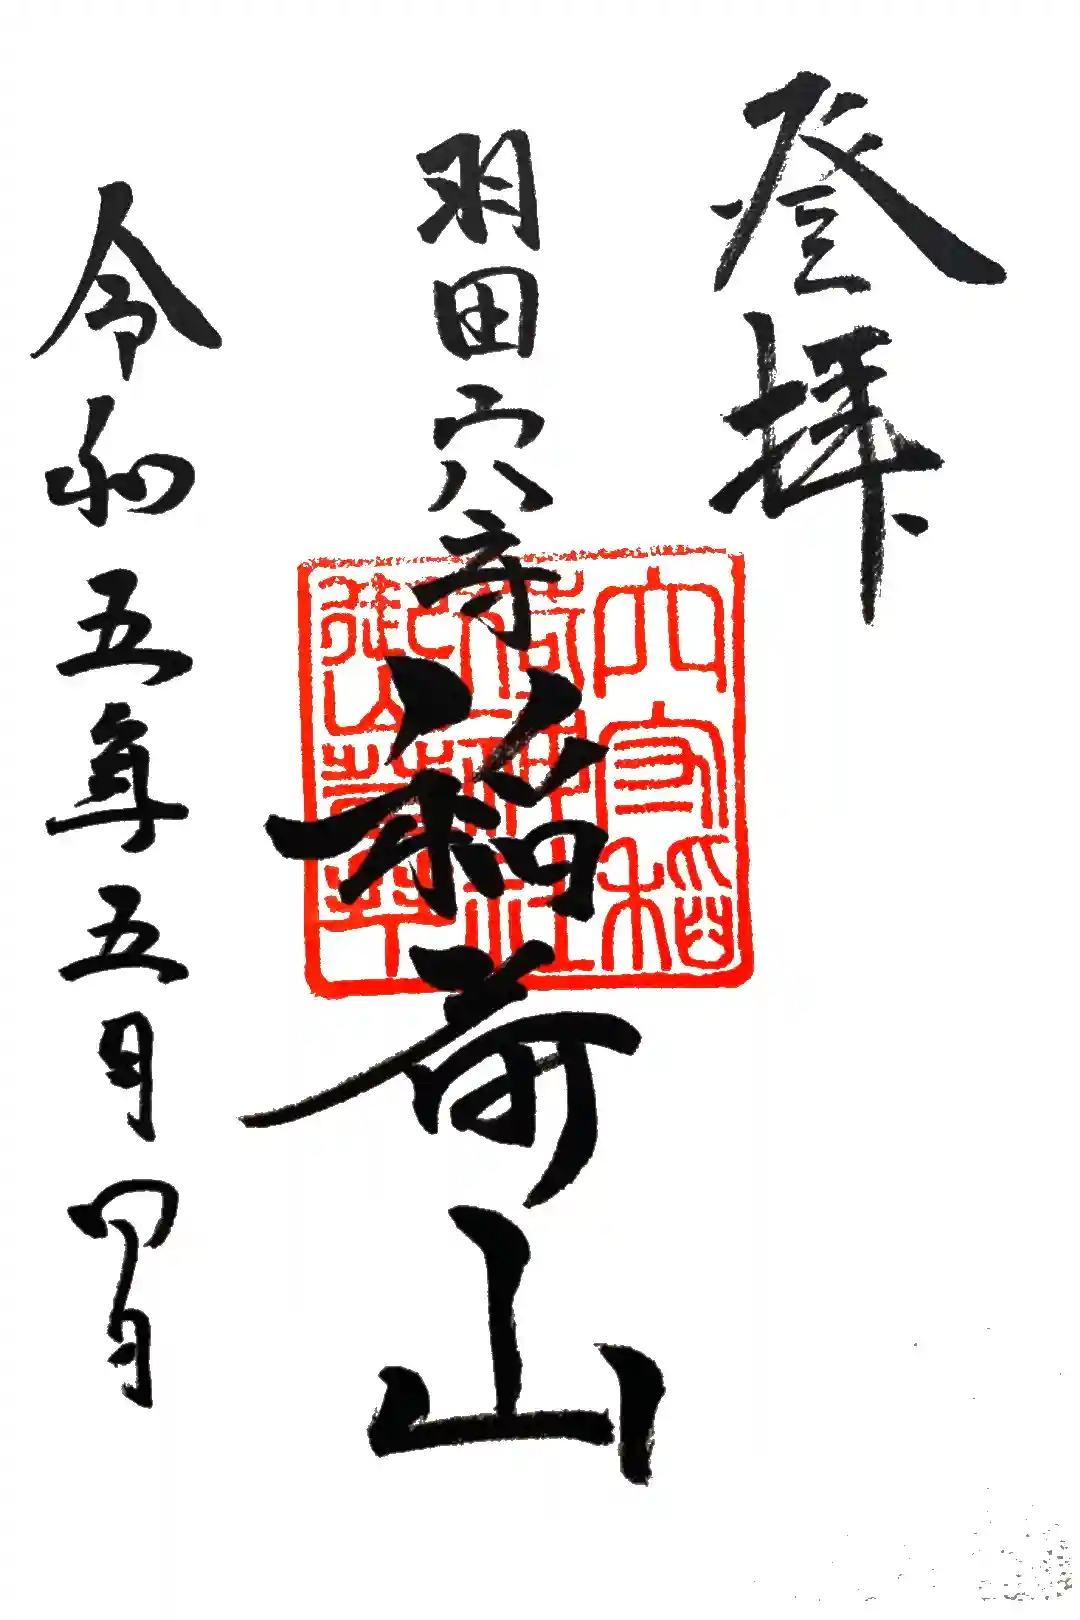 登拝
羽田穴守稲荷山
令和五年五月日
穴守稲
荷神社